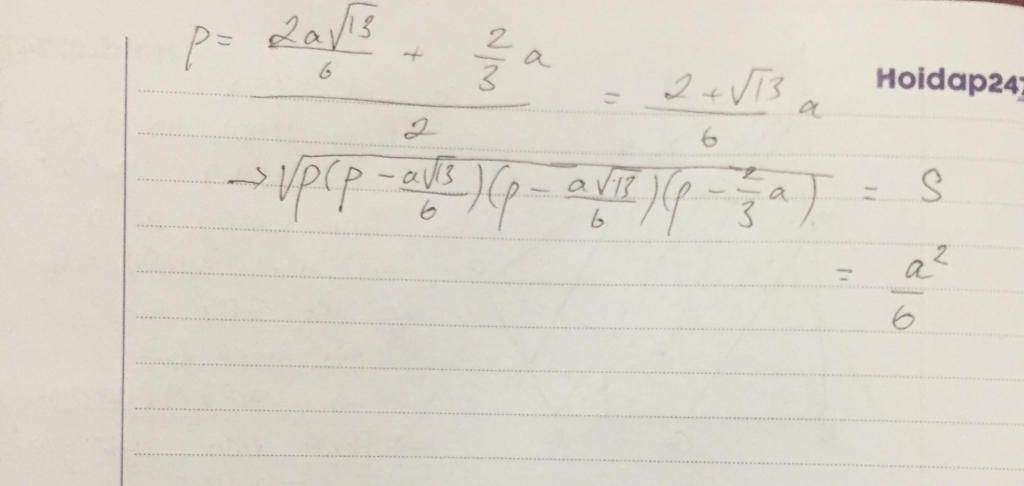 p = (2a√13/6 + 2/3 a)/2 = (2+√13)/6 a
Hoidap247
→ √(p(p - a√13/6)(p - a√13/6)(p - 2/3 a)) = S
= a²/6